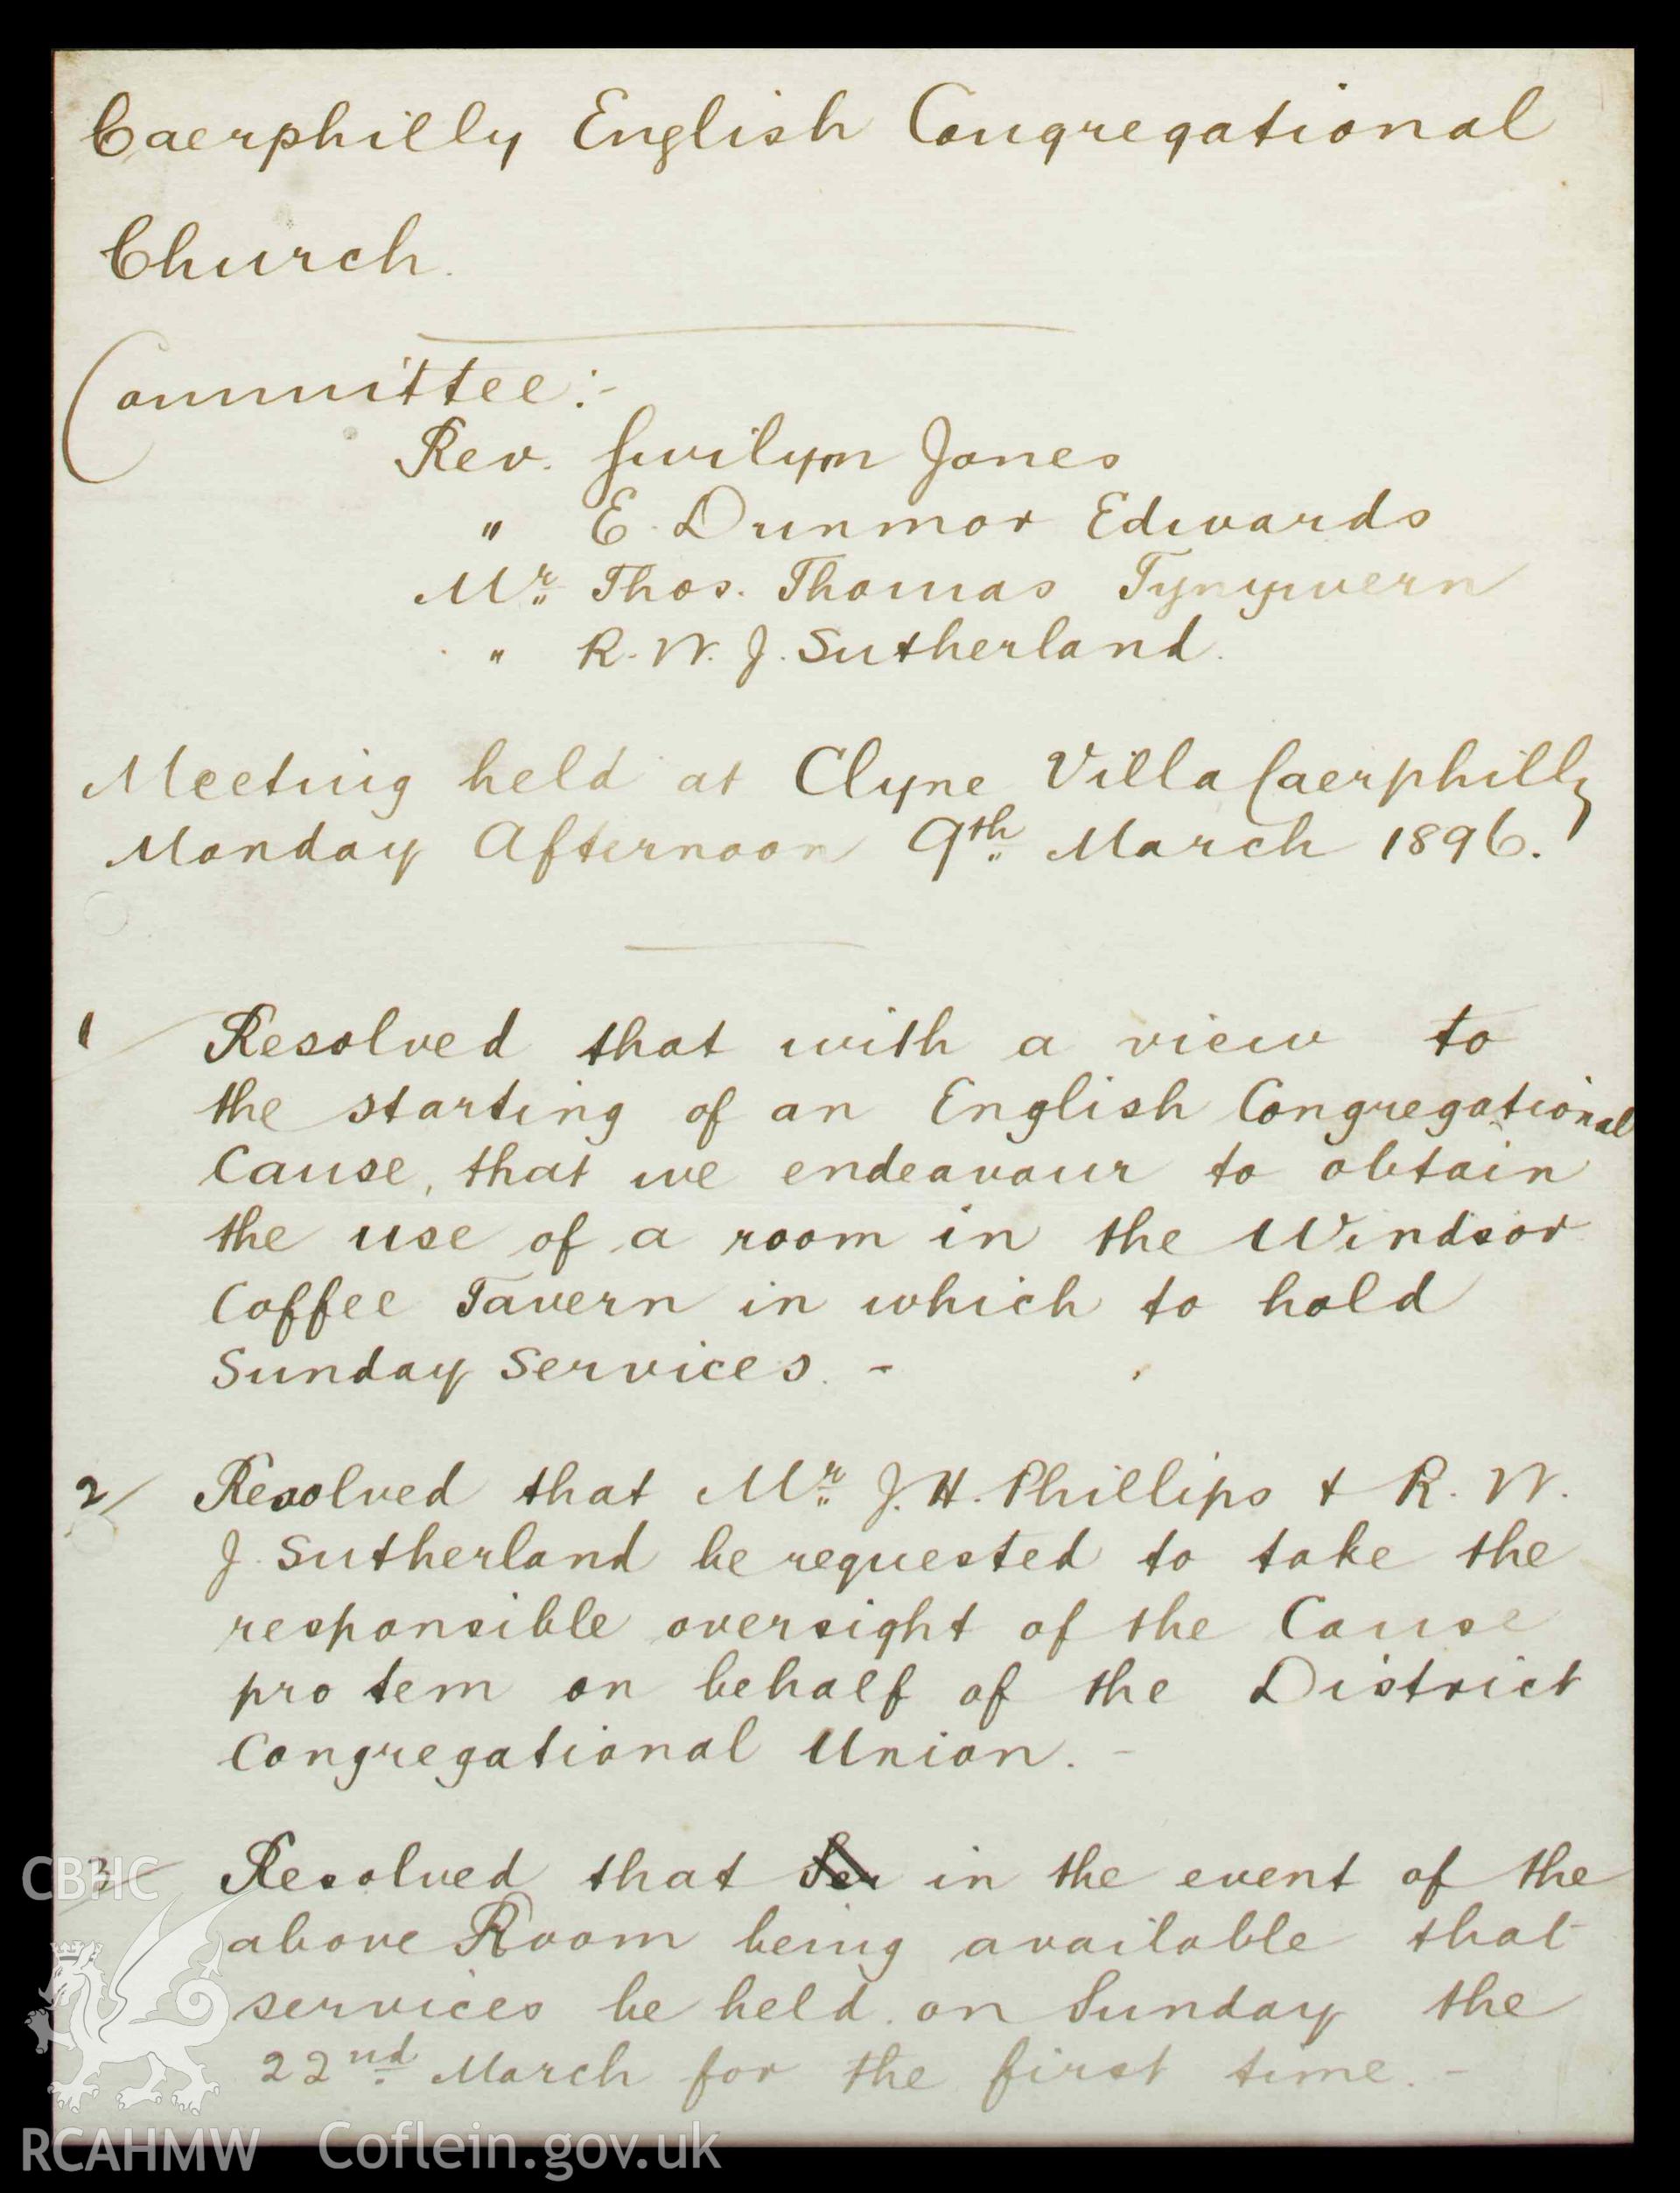 Caerphilly English Congregational
Church.
Committee:-
Rev. Gwilym Jones
" E. Dunmor Edwards
Mr. Thos. Thomas Tynywern
" R. W. J. Sutherland.
Meeting held at Clyne Villa Caerphilly
Monday Afternoon 9th March 1896.
1 Resolved that with a view to
the starting of an English Congregational
Cause, that we endeavour to obtain
the use of a room in the Windsor
Coffee Tavern in which to hold
Sunday Services. -
2/ Resolved that Mr. J. H. Phillips & R. W.
J. Sutherland be requested to take the
responsible oversight of the Cause
pro tem on behalf of the District
Congregational Union. -
3/ Resolved that Ser in the event of the
above Room being available that
services be held on Sunday the
22nd March for the first time. -
CBHC
RCAHMW Coflein.gov.uk